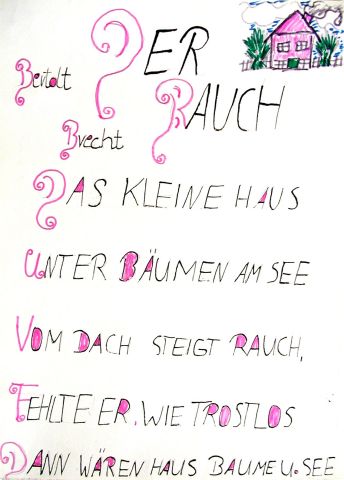 DER
Bertolt
RAUCH
Brecht
DAS KLEINE HAUS
UNTER BÄUMEN AM SEE
VOM DACH STEIGT RAUCH,
FEHLTE ER. WIE TROSTLOS
DANN WÄREN HAUS BAUME U. SEE